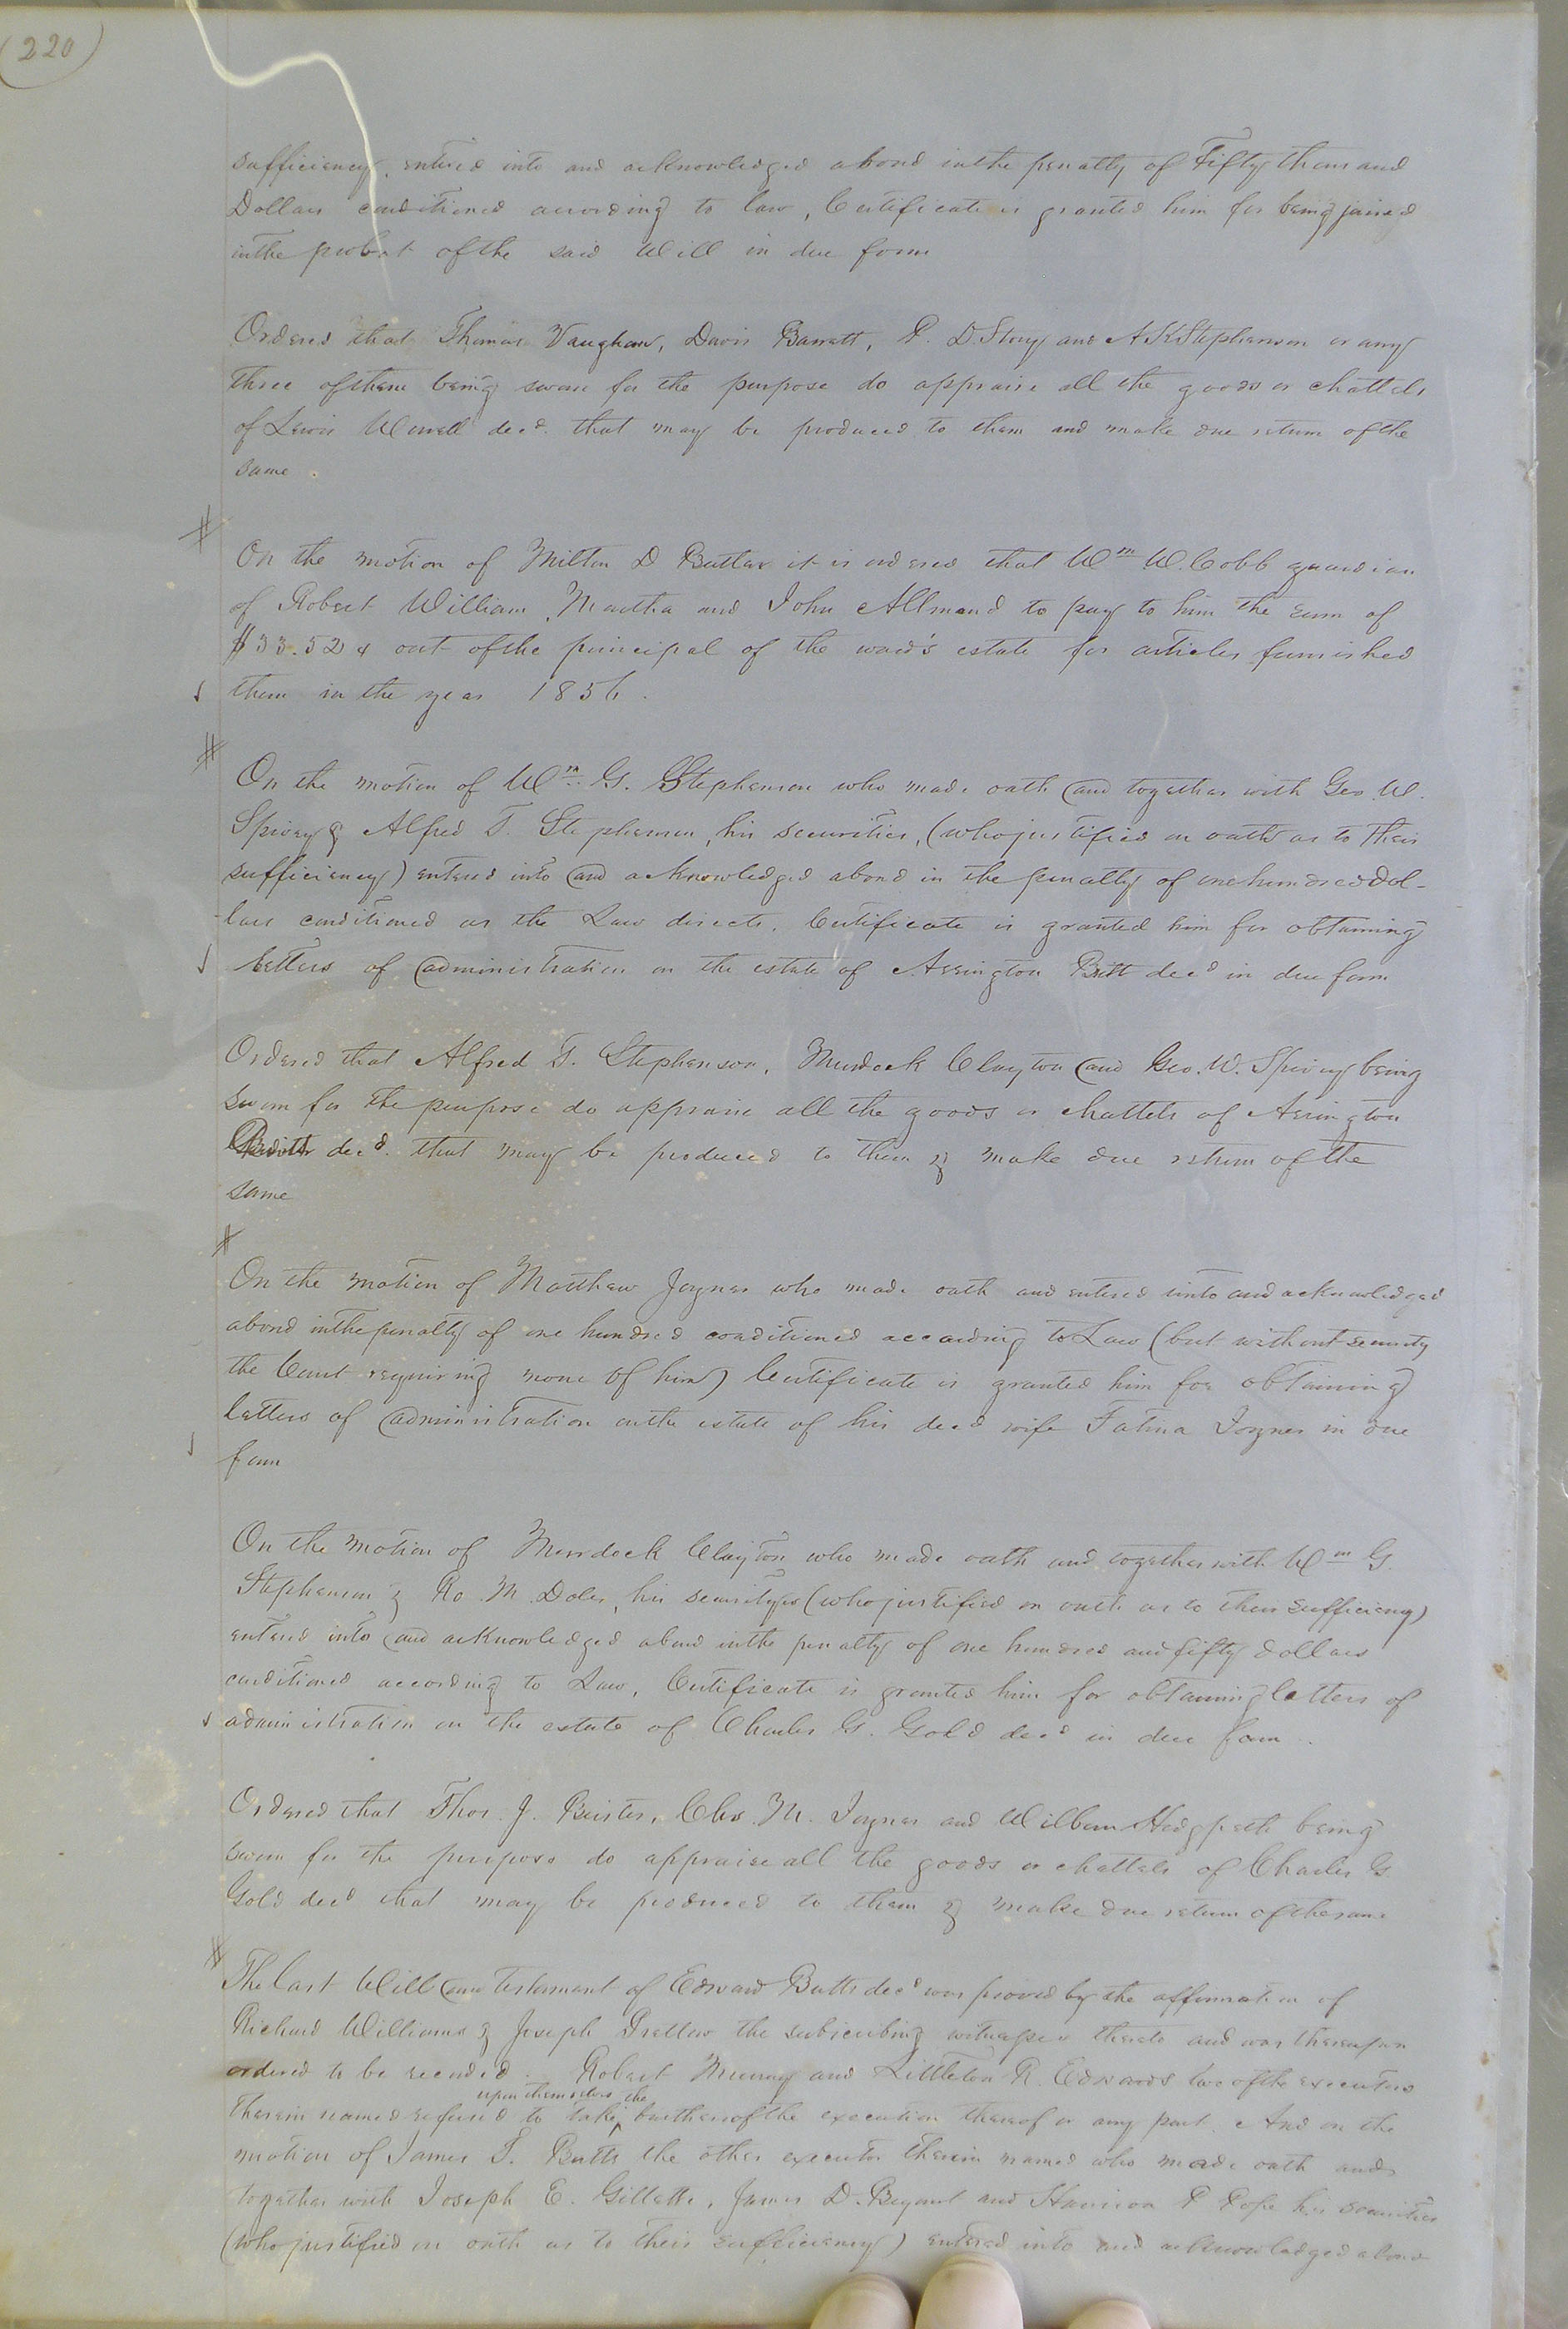 (220)
sufficiency, entered into and acknowledged a bond in the penalty of Fifty thousand
Dollars conditioned according to law, Certificate is granted him for being joined
in the probat of the said Will in due form
Ordered that Thomas Vaughan, Davis Barrett, P. D Story and A K Stephenson or any
three of them being sworn for the purpose do appraise all the goods or chattels
of Lewis Worrell decd. that may be produced to them and make due return of the
same.
#
On the motion of Milton D Butler it is ordered that Wm W. Cobb guardian
of Robert William, Martha and John Allmand to pay to him the sum of
$33.52 out of the principal of the ward's estate for articles furnished
them in the year 1856.
#
On the motion of Wm G. Stephenson who made oath and together with Geo. W.
Spivey & Alfred T. Stephenson, his securities, (who justified on oath as to their
sufficiency) entered into and acknowledged a bond in the penalty of one hundred Dol-
-lars conditioned as the Law directs. Certificate is granted him for obtaining
letters of administration on the estate of Arrington Britt decd in due form
Ordered that Alfred T. Stephenson, Murdock Clayton and Geo. W. Spivey being
sworn for the purpose do appraise all the goods or chattels of Arrington
decd. that may be produced to them & make due return of the
same
#
On the motion of Matthew Joyner who made oath and entered into and acknowledged
a bond in the penalty of one hundred conditioned according to Law (but without security
the Court requiring none of him) Certificate is granted him for obtaining
letters of administration on the estate of his decd wife Joyner in due
form
On the motion of Murdock Clayton who made oath and together with Wm G.
Stephenson & Ro. M. Doles, his securitys (who justified on oath as to their sufficiency)
entered into and acknowledged a bond in the penalty of one hundred and fifty dollars
conditioned according to Law, Certificate is granted him for obtaining letters of
administration on the estate of Charles G. Gold decd in due form.
Ordered that Thos. J. Chs. M. Joyner and William Hedgpeth being
sworn for the purpose do appraise all the goods or chattels of Charles G.
Gold decd that may be produced to them & make due return of the same
#
The last Will and testament of Edward Butts decd was proved by the affirmation of
Richard Williams & Joseph Pretlow the subscribing witnesses thereto and was thereupon
ordered to be recorded. Robert Murray and Littleton R. Edwards two of the executors
upon themselves the
therein named refused to take ‸ burthen of the execution thereof or any part. And on the
motion of James T. Butts the other executor therein named who made oath and
together with Joseph E. Gillette, James D. Bryant and Harrison P Pope his securities
(who justified on oath as to their sufficiency) entered into and acknowledged a bond